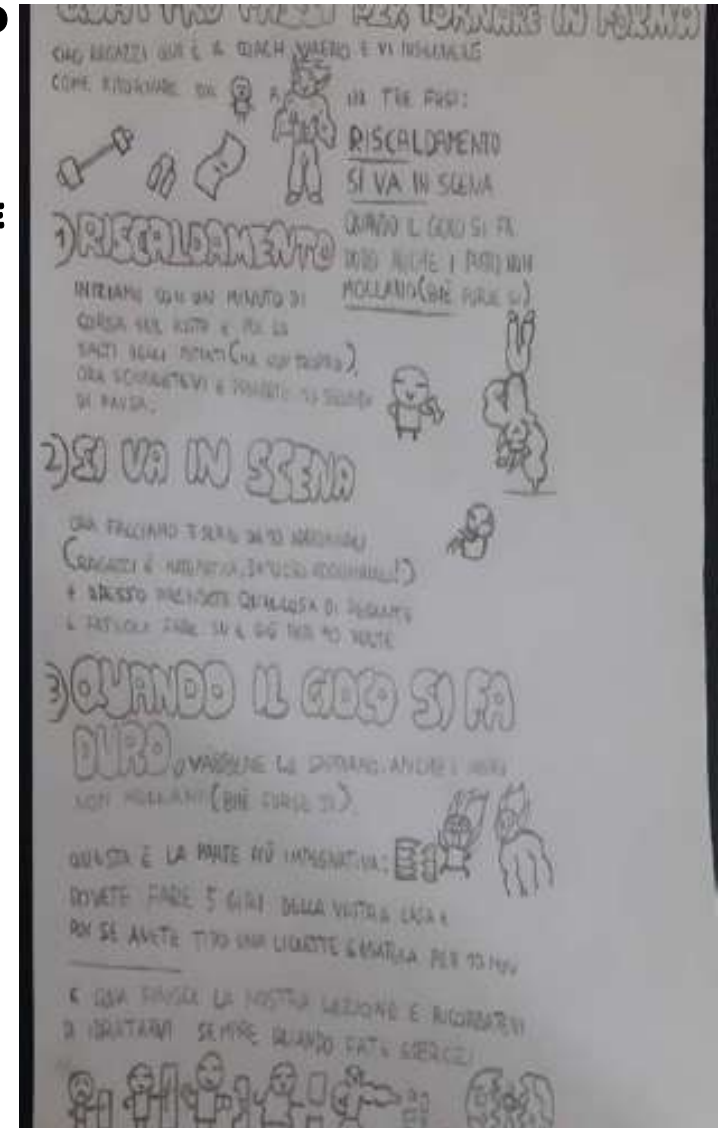 QUATTRO PASSI PER TORNARE IN FORMA
CIAO RAGAZZI QUI È IL COACH VALERIO E VI INSEGNERÒ
COME RITORNARE DA A
IN TRE FASI:
RISCALDAMENTO
SI VA IN SCENA
QUANDO IL GIOCO SI FA
DURO ANCHE I DURI NON
MOLLANO (BHÈ FORSE SI)
1) RISCALDAMENTO
INIZIAMO CON UN MINUTO DI
CORSA SUL POSTO E POI 20
SALTI (MA NON TROPPO),
ORA SCIOGLETEVI E 10 SECONDI
DI PAUSA.
2) SI VA IN SCENA
ORA FACCIAMO 3 SERIE DA 10 ADDOMINALI
(RAGAZZI È MATEMATICA, ADDOMINALI!)
E ADESSO PRENDETE QUALCOSA DI PESANTE
E FATELO FARE SU E GIÙ PER 10 VOLTE
3) QUANDO IL GIOCO SI FA
DURO, VABBENE LO SAPPIAMO, ANCHE I DURI
NON MOLLANO (BHÈ FORSE SI).
QUESTA È LA PARTE PIÙ IMPEGNATIVA:
DOVETE FARE 5 GIRI DELLA VOSTRA CASA E
POI SE AVETE TIPO UNA PER 10 MIN
E QUA FINISCE LA NOSTRA LEZIONE E RICORDATEVI
DI IDRATARVI SEMPRE QUANDO FATE ESERCIZI